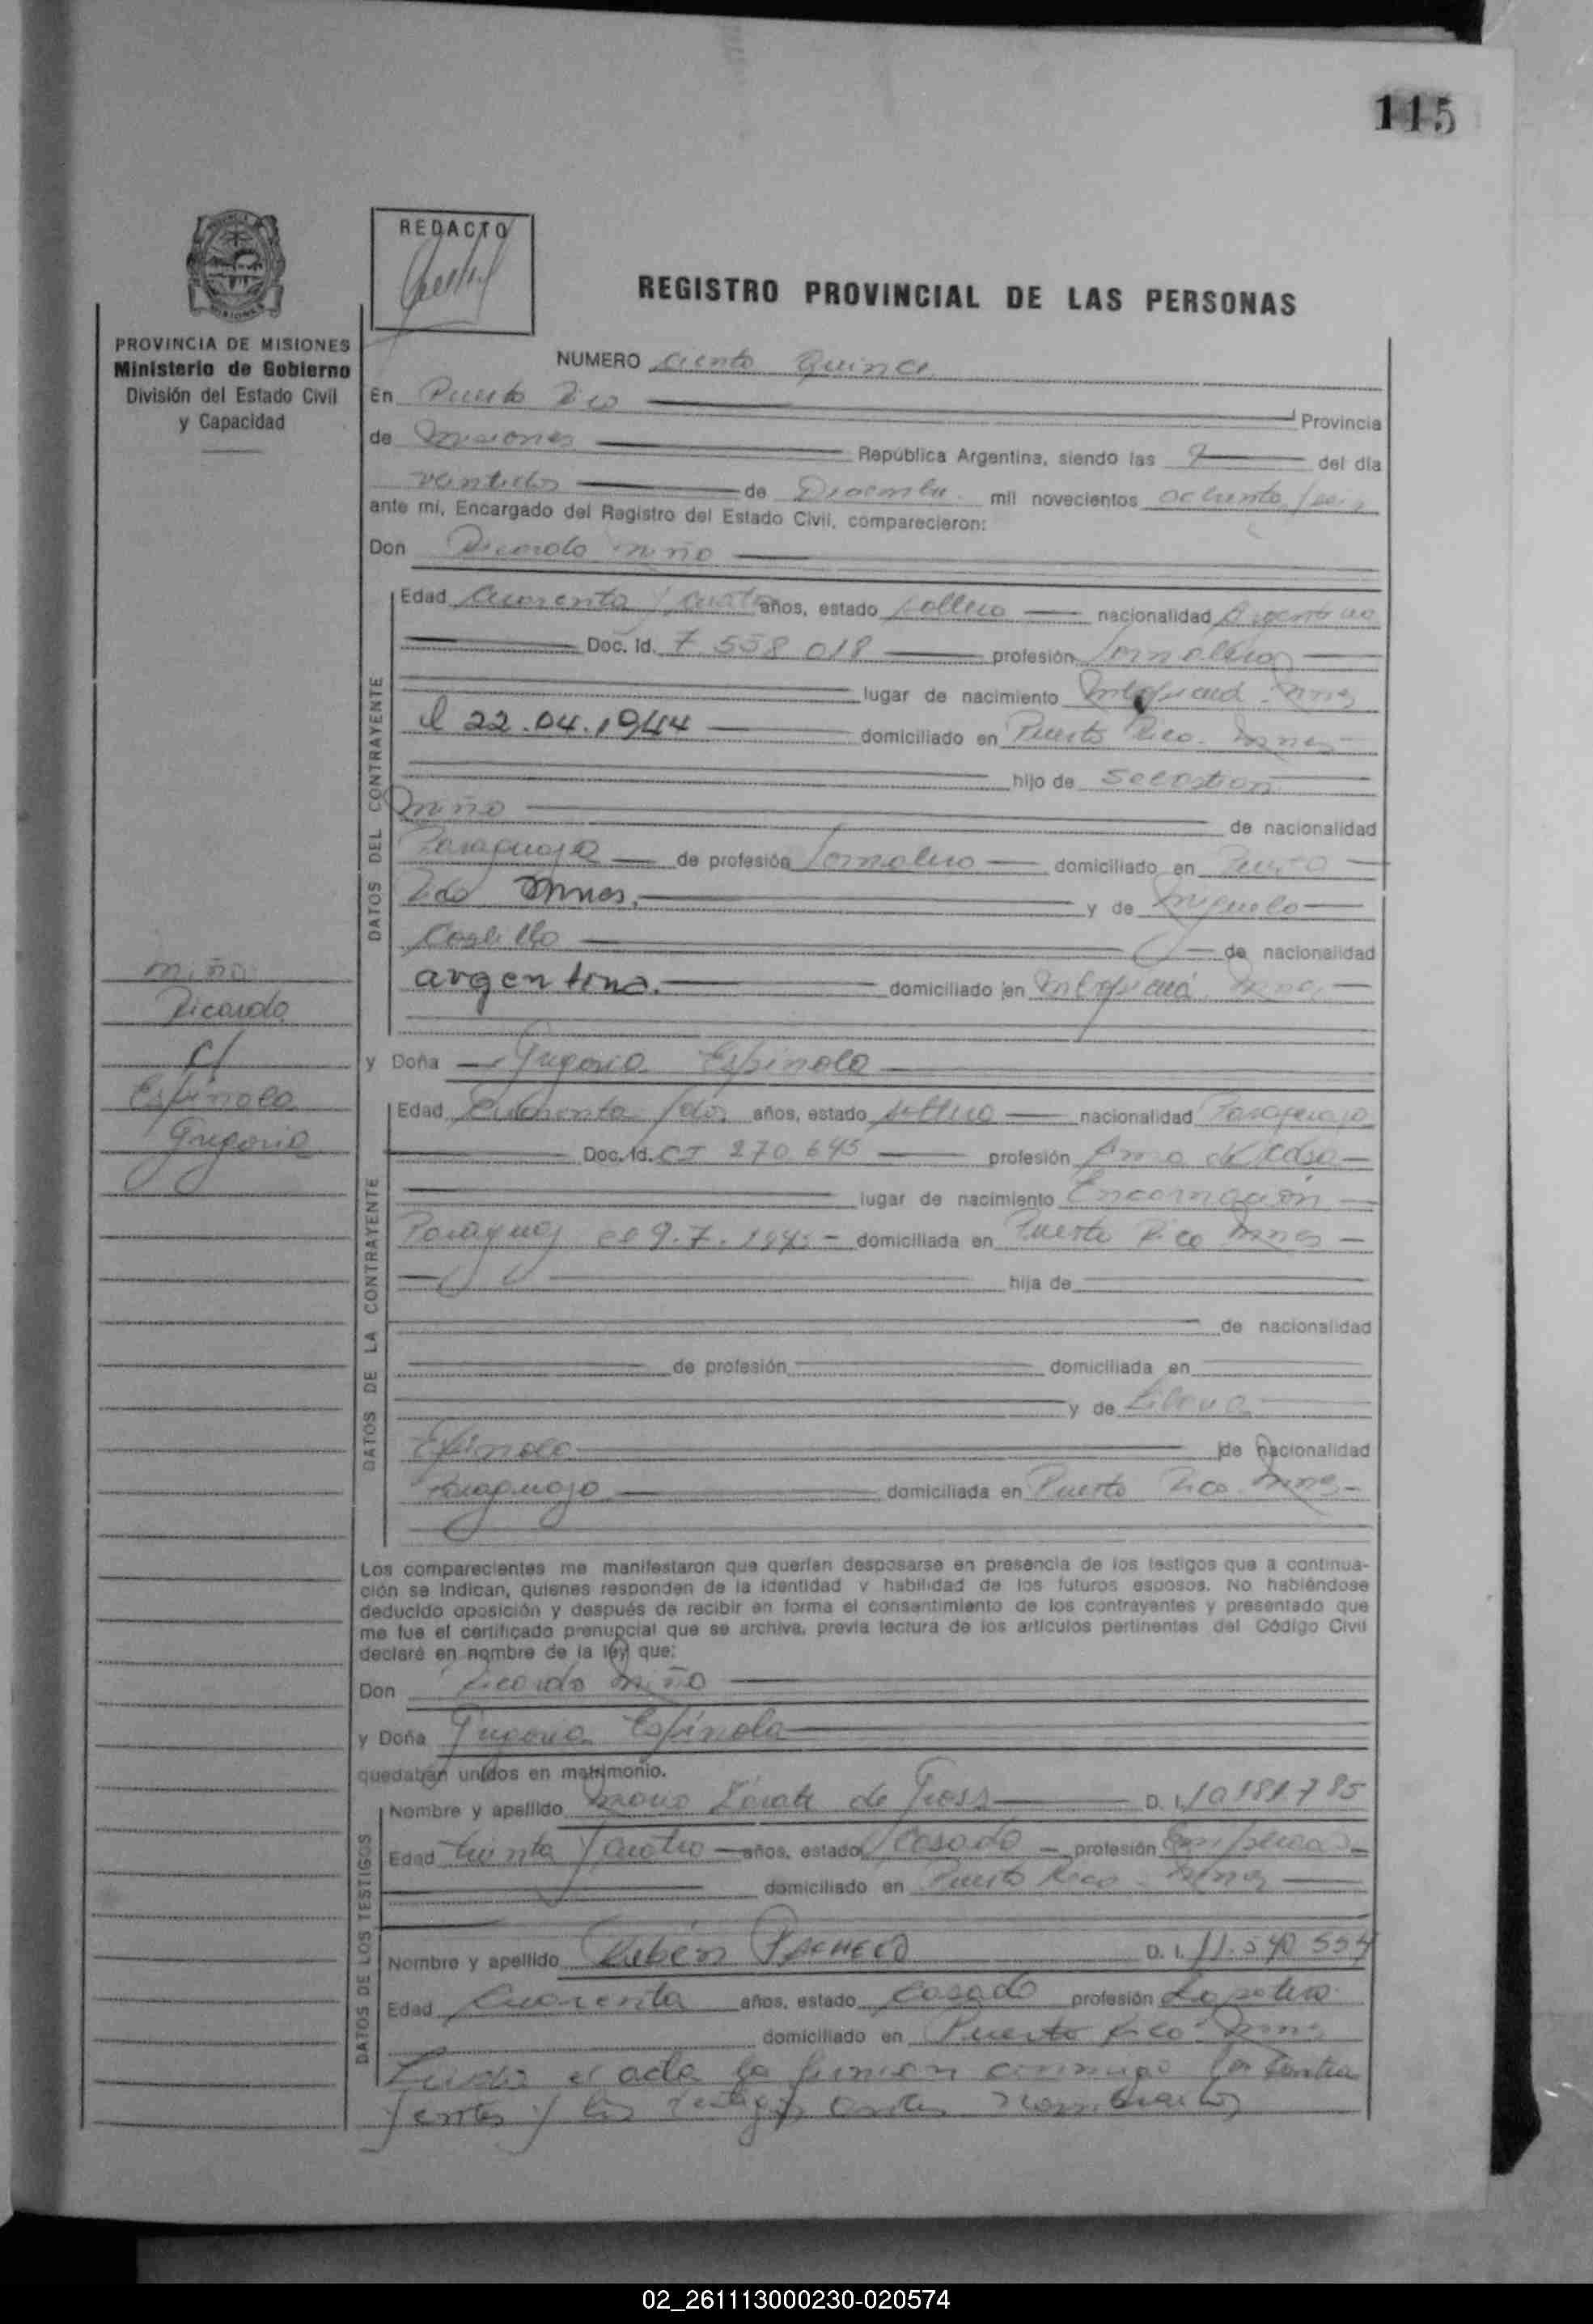 115
REDACTO
REGISTRO PROVINCIAL DE LAS PERSONAS
PROVINCIA DE MISIONES
Ministerio de Gobierno
División del Estado Civil
y Capacidad
NUMERO Ciento Quince
En Puerto Rico Provincia
de Misiones República Argentina, siendo las 9 del día
ventidos de Diciembre mil novecientos ochenta y seis
ante mí, Encargado del Registro del Estado Civil, comparecieron:
Don Ricardo Miño
DATOS DEL CONTRAYENTE
Edad Cuarenta y cuatro años, estado soltero nacionalidad Argentino
Doc. Id. 7.558.018 profesión Jornalero
lugar de nacimiento Mnes
el 22.04.1944 domiciliado en Puerto Rico. Mnes
hijo de Sebastian
Miño de nacionalidad
Paraguaya de profesión Jornalero domiciliado en Puerto
Rico Mnes. y de Miguela
de nacionalidad
argentina. domiciliado en Mnes
y Doña Gregoria Espinola
DATOS DE LA CONTRAYENTE
Edad Cuarenta y dos años, estado soltera nacionalidad Paraguaya
Doc. Id. CI 270.645 profesión Ama de Casa
lugar de nacimiento Encarnación
Paraguay el 9.7. domiciliada en Puerto Rico Mnes
hija de
de nacionalidad
de profesión domiciliada en
y de
Espinola de nacionalidad
Paraguaya domiciliada en Puerto Rico Mnes
Miño
Ricardo
c/
Espinola
Gregoria
Los comparecientes me manifestaron que querían desposarse en presencia de los testigos que a continua-
ción se indican, quienes responden de la identidad y habilidad de los futuros esposos. No habiéndose
deducido oposición y después de recibir en forma el consentimiento de los contrayentes y presentado que
me fue el certificado prenupcial que se archiva, previa lectura de los artículos pertinentes del Código Civil
declaré en nombre de la ley que:
Don Ricardo Miño
y Doña Gregoria Espinola
quedaban unidos en matrimonio.
DATOS DE LOS TESTIGOS
Nombre y apellido Zárate de D. I. 10.181.785
Edad treinta y cuatro años, estado Casada profesión Empleada
domiciliado en Puerto Rico - Mnes
Nombre y apellido Rubén PACHECO D. I. 11.540.554
Edad Cuarenta años, estado Casado profesión Zapatero
domiciliado en Puerto Rico - Mnes
el acta la firman conmigo los contra
yentes y los testigos antes nombrados
02_261113000230-020574